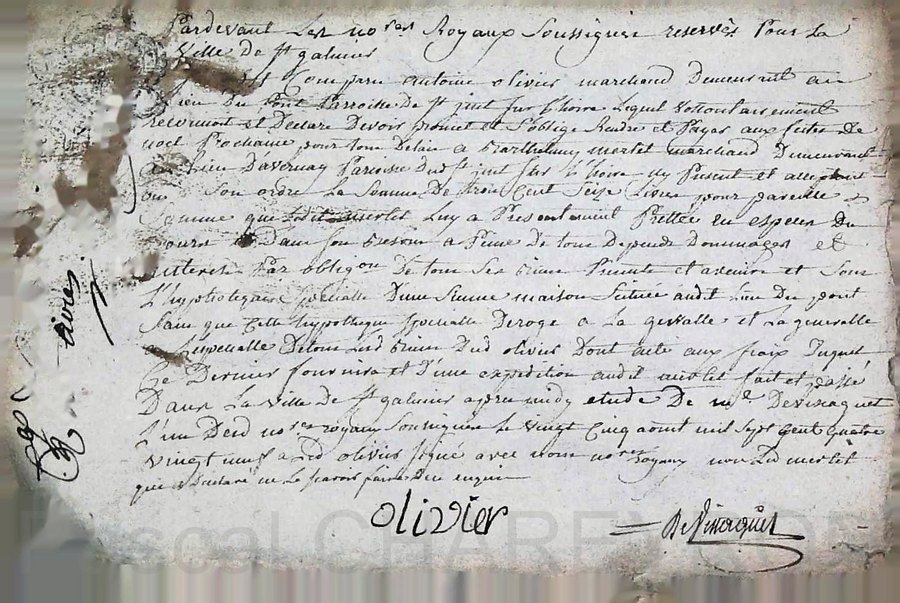 Pardevant Les no.res Royaux Soussignés reservés Pour La
Ville De st galmier
Comparu antoine olivier marchand Demeurant au
Lieu Du Pont Parroisse De st just sur Lhoire Lequel vollontairement
et Declare Devoir promet et s'oblige Rendre et Payer aux fettes De
noel Prochaine pour tout Delai a Barthelemy merlet marchand Demeurant
au Lieu Davernay Paroisse Dud st just sur Lhoire icy Present et
ou a Son ordre La Somme De trois Cent Seize Livres pour pareille
Somme que Ledit merlet Luy a Presentement Prettée en especes Du
Cours a peine De tous Depends Dommages et
interets Par obligon De tous Ses Biens Presents et avenir et Sous
L'hypothegaire speciale D'une Sienne maison Scituée audit Lieu Du pont
Sans que Cette hypotheque specialle Deroge a La generalle et La generalle
a La specialle De tous Lesd Biens Dud olivier Dont acte aux fraix Duquel
Ce Dernier fournira et D'une expedition audit merlet fait et passé
Dans La ville De st galmier apres midy etude De me Deviraguet
L'un Desd no.res royaux Soussignés Le vingt Cinq aout mil Sept Cent quatre
vingt neuf Led olivier signé avec nous no.res Royaux non Led merlet
qui a Declaré ne Le savoir faire De ce enquis
olivier
Deviraguet